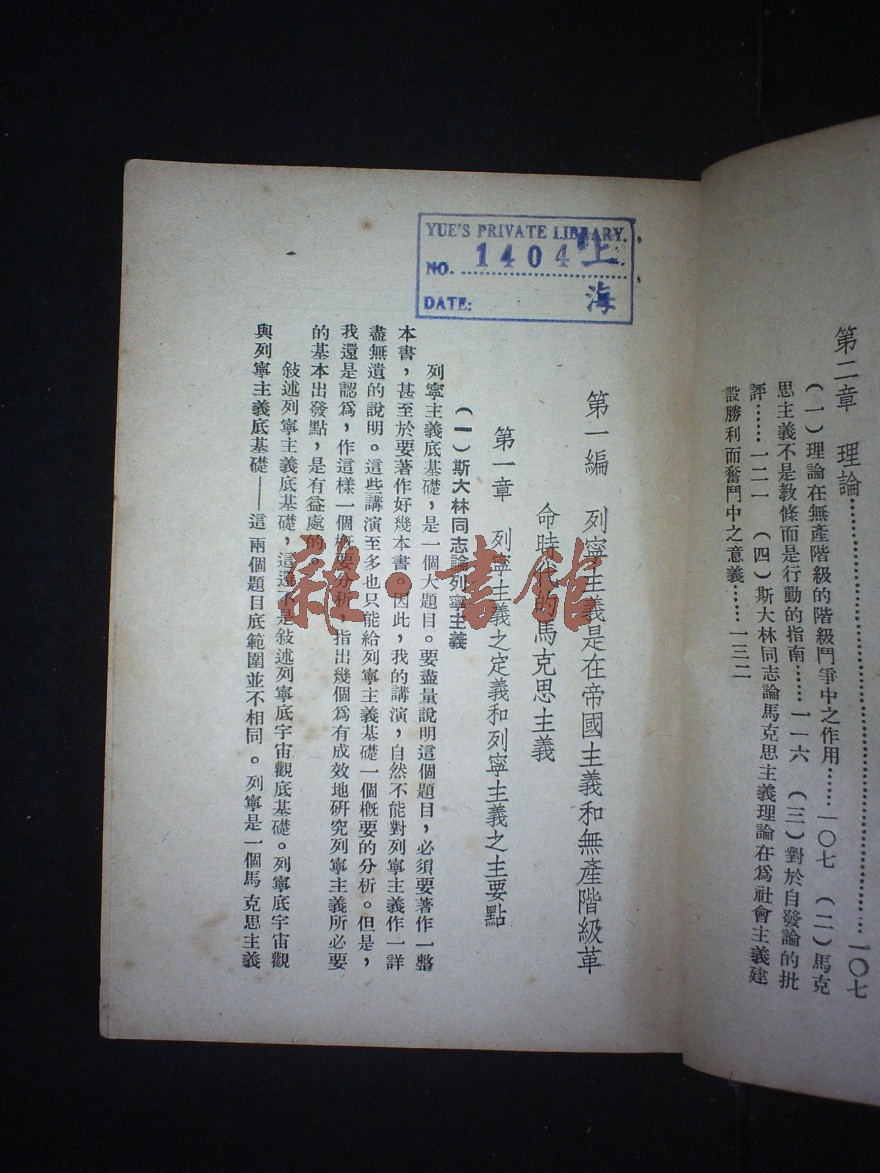 第二章 理論……………………………一〇七
(一)理論在無產階級的階級鬥爭中之作用……一〇七 (二)馬克
思主義不是教條而是行動的指南……一一六 (三)對於自發論的批
評……一二一 (四)斯大林同志論馬克思主義理論在爲社會主義建
設勝利而奮鬥中之意義……一三二
YUE'S PRIVATE LIBRARY.
NO. 1404 上
DATE: 海
第一編 列寧主義是在帝國主義和無產階級革
命時代的馬克思主義
第一章 列寧主義之定義和列寧主義之主要點
(一)斯大林同志論列寧主義
列寧主義底基礎,是一個大題目。要盡量說明這個題目,必須要著作一整
本書,甚至於要著作好幾本書。因此,我的講演,自然不能對列寧主義作一詳
盡無遺的說明。這些講演至多也只能給列寧主義基礎一個概要的分析。但是,
我還是認爲,作這樣一個概要分析,指出幾個爲有成效地研究列寧主義所必要
的基本出發點,是有益處的。
敍述列寧主義底基礎,這還不是敍述列寧底宇宙觀底基礎。列寧底宇宙觀
與列寧主義底基礎——這兩個題目底範圍並不相同。列寧是一個馬克思主義
雜·書館